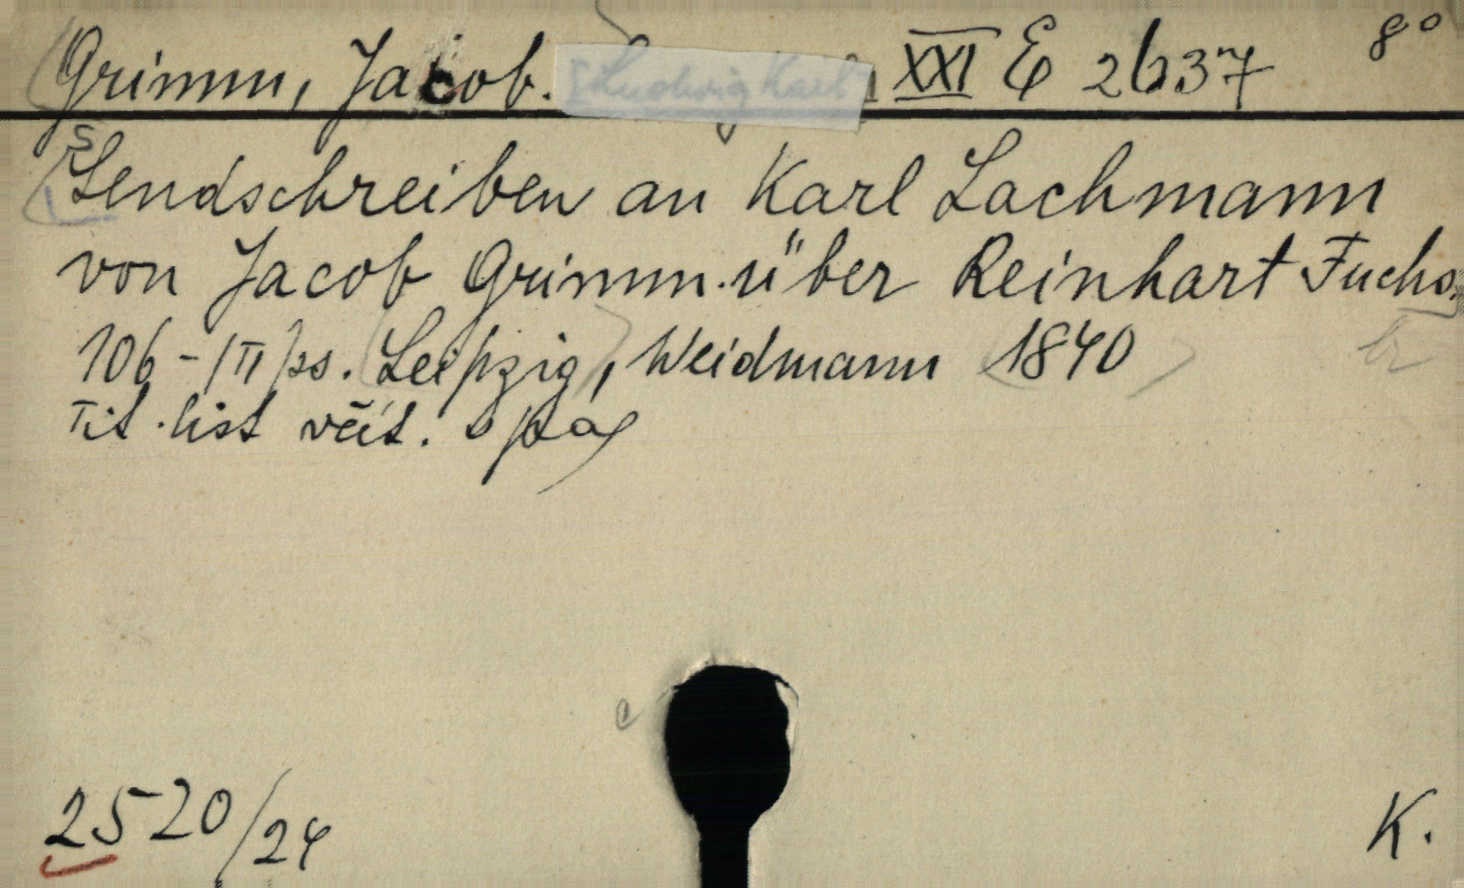 Grimm, Jacob. [Ludwig Karl] XXI E 2637 8°
Sendschreiben an Karl Lachmann
von Jacob Grimm. über Reinhart Fuchs.
106-/II/ss. Leipzig, Weidmann 1840
Tit. list
2520/24
K.